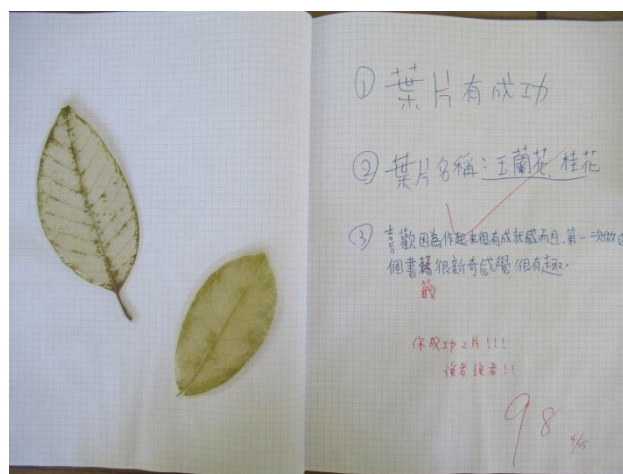 ① 葉片有成功
② 葉片名稱：玉蘭花、桂花
③ 喜歡因為作起來很有成就感而且,第一次做這
個書籍很新奇感覺很有趣。
籤
你成功2片!!!
強者強者!!
98
4/25